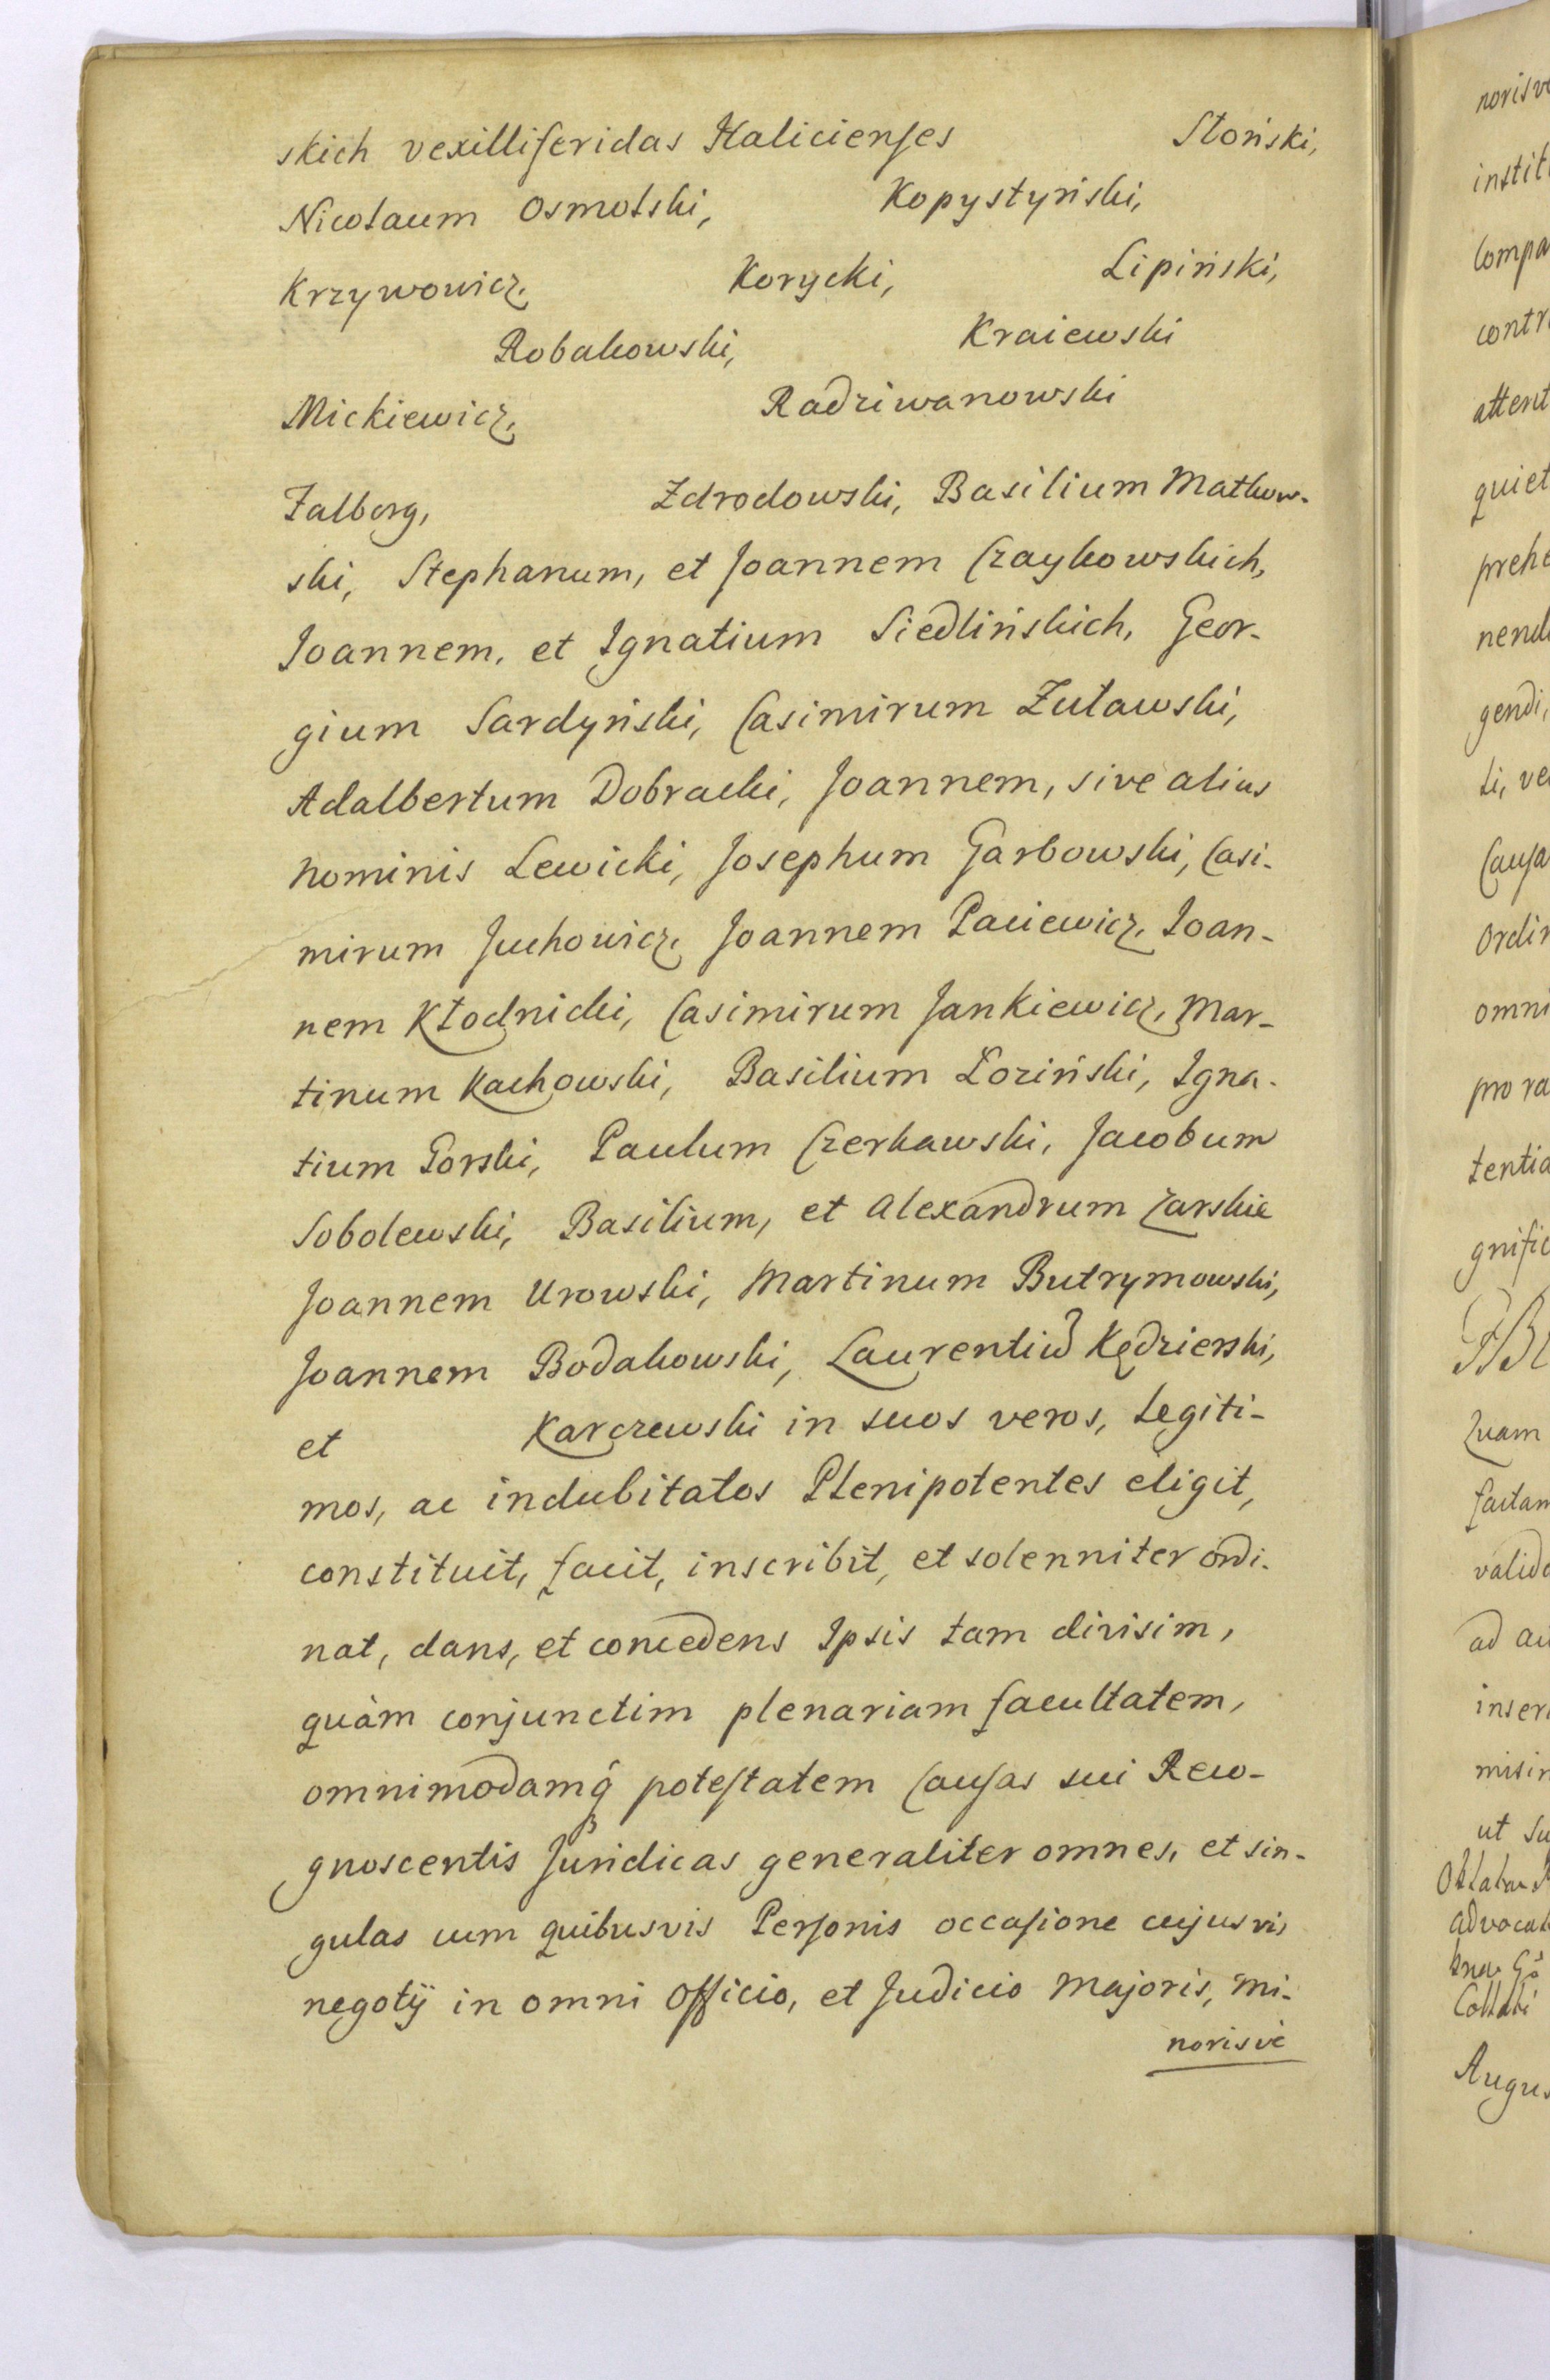 skich vexilliferidas Halicienses Słoński,
Nicolaum Osmolski, Kopystyński,
Krzywowicz, Korycki, Lipiński,
Robakowski, Kraiewski
Mickiewicz, Radziwanowski
Falberg, Zdrodowski, Basilium Matkow-
ski, Stephanum, et Joannem Czaykowskich,
Joannem, et Ignatium Siedlińskich, Geor-
gium Sardyński, Casimirum Zuławski,
Adalbertum Dobracki, Joannem, sive alius
nominis Lewicki, Josephum Garbowski, Casi-
mirum Juchowicz, Joannem Paciewicz, Joan-
nem Kłodnicki, Casimirum Jankiewicz, Mar-
tinum Kachowski, Basilium Łoziński, Igna-
tium Gorski, Paulum Czerkawski, Jacobum
Sobolewski, Basilium, et Alexandrum Zarskie
Joannem Urowski, Martinum Butrymowski,
Joannem Bodakowski, Laurentiũ Kędzierski,
et Karczewski in suos veros, legiti-
mos, ac indubitatos Plenipotentes eligit,
constituit, facit, inscribit, et solenniter ordi-
nat, dans, et concedens Ipsis tam divisim,
quàm conjunctim plenariam facultatem,
omnimodamq́ potestatem Causas sui Reco-
gnoscentis Juridicas generaliter omnes, et sin-
gulas cum quibusvis Personis occasione cujusvis
negotij in omni Officio, et Judicio Majoris, mi-
norisvè
norisv
instit
Compa
contr
attent
quiet
prehe
nend
gendi,
li, ve
Causa
Ordin
omni
pro ra
tentia
gnific
Quam
factam
valida
ad au
inser
misin
ut su
advocat
Augus